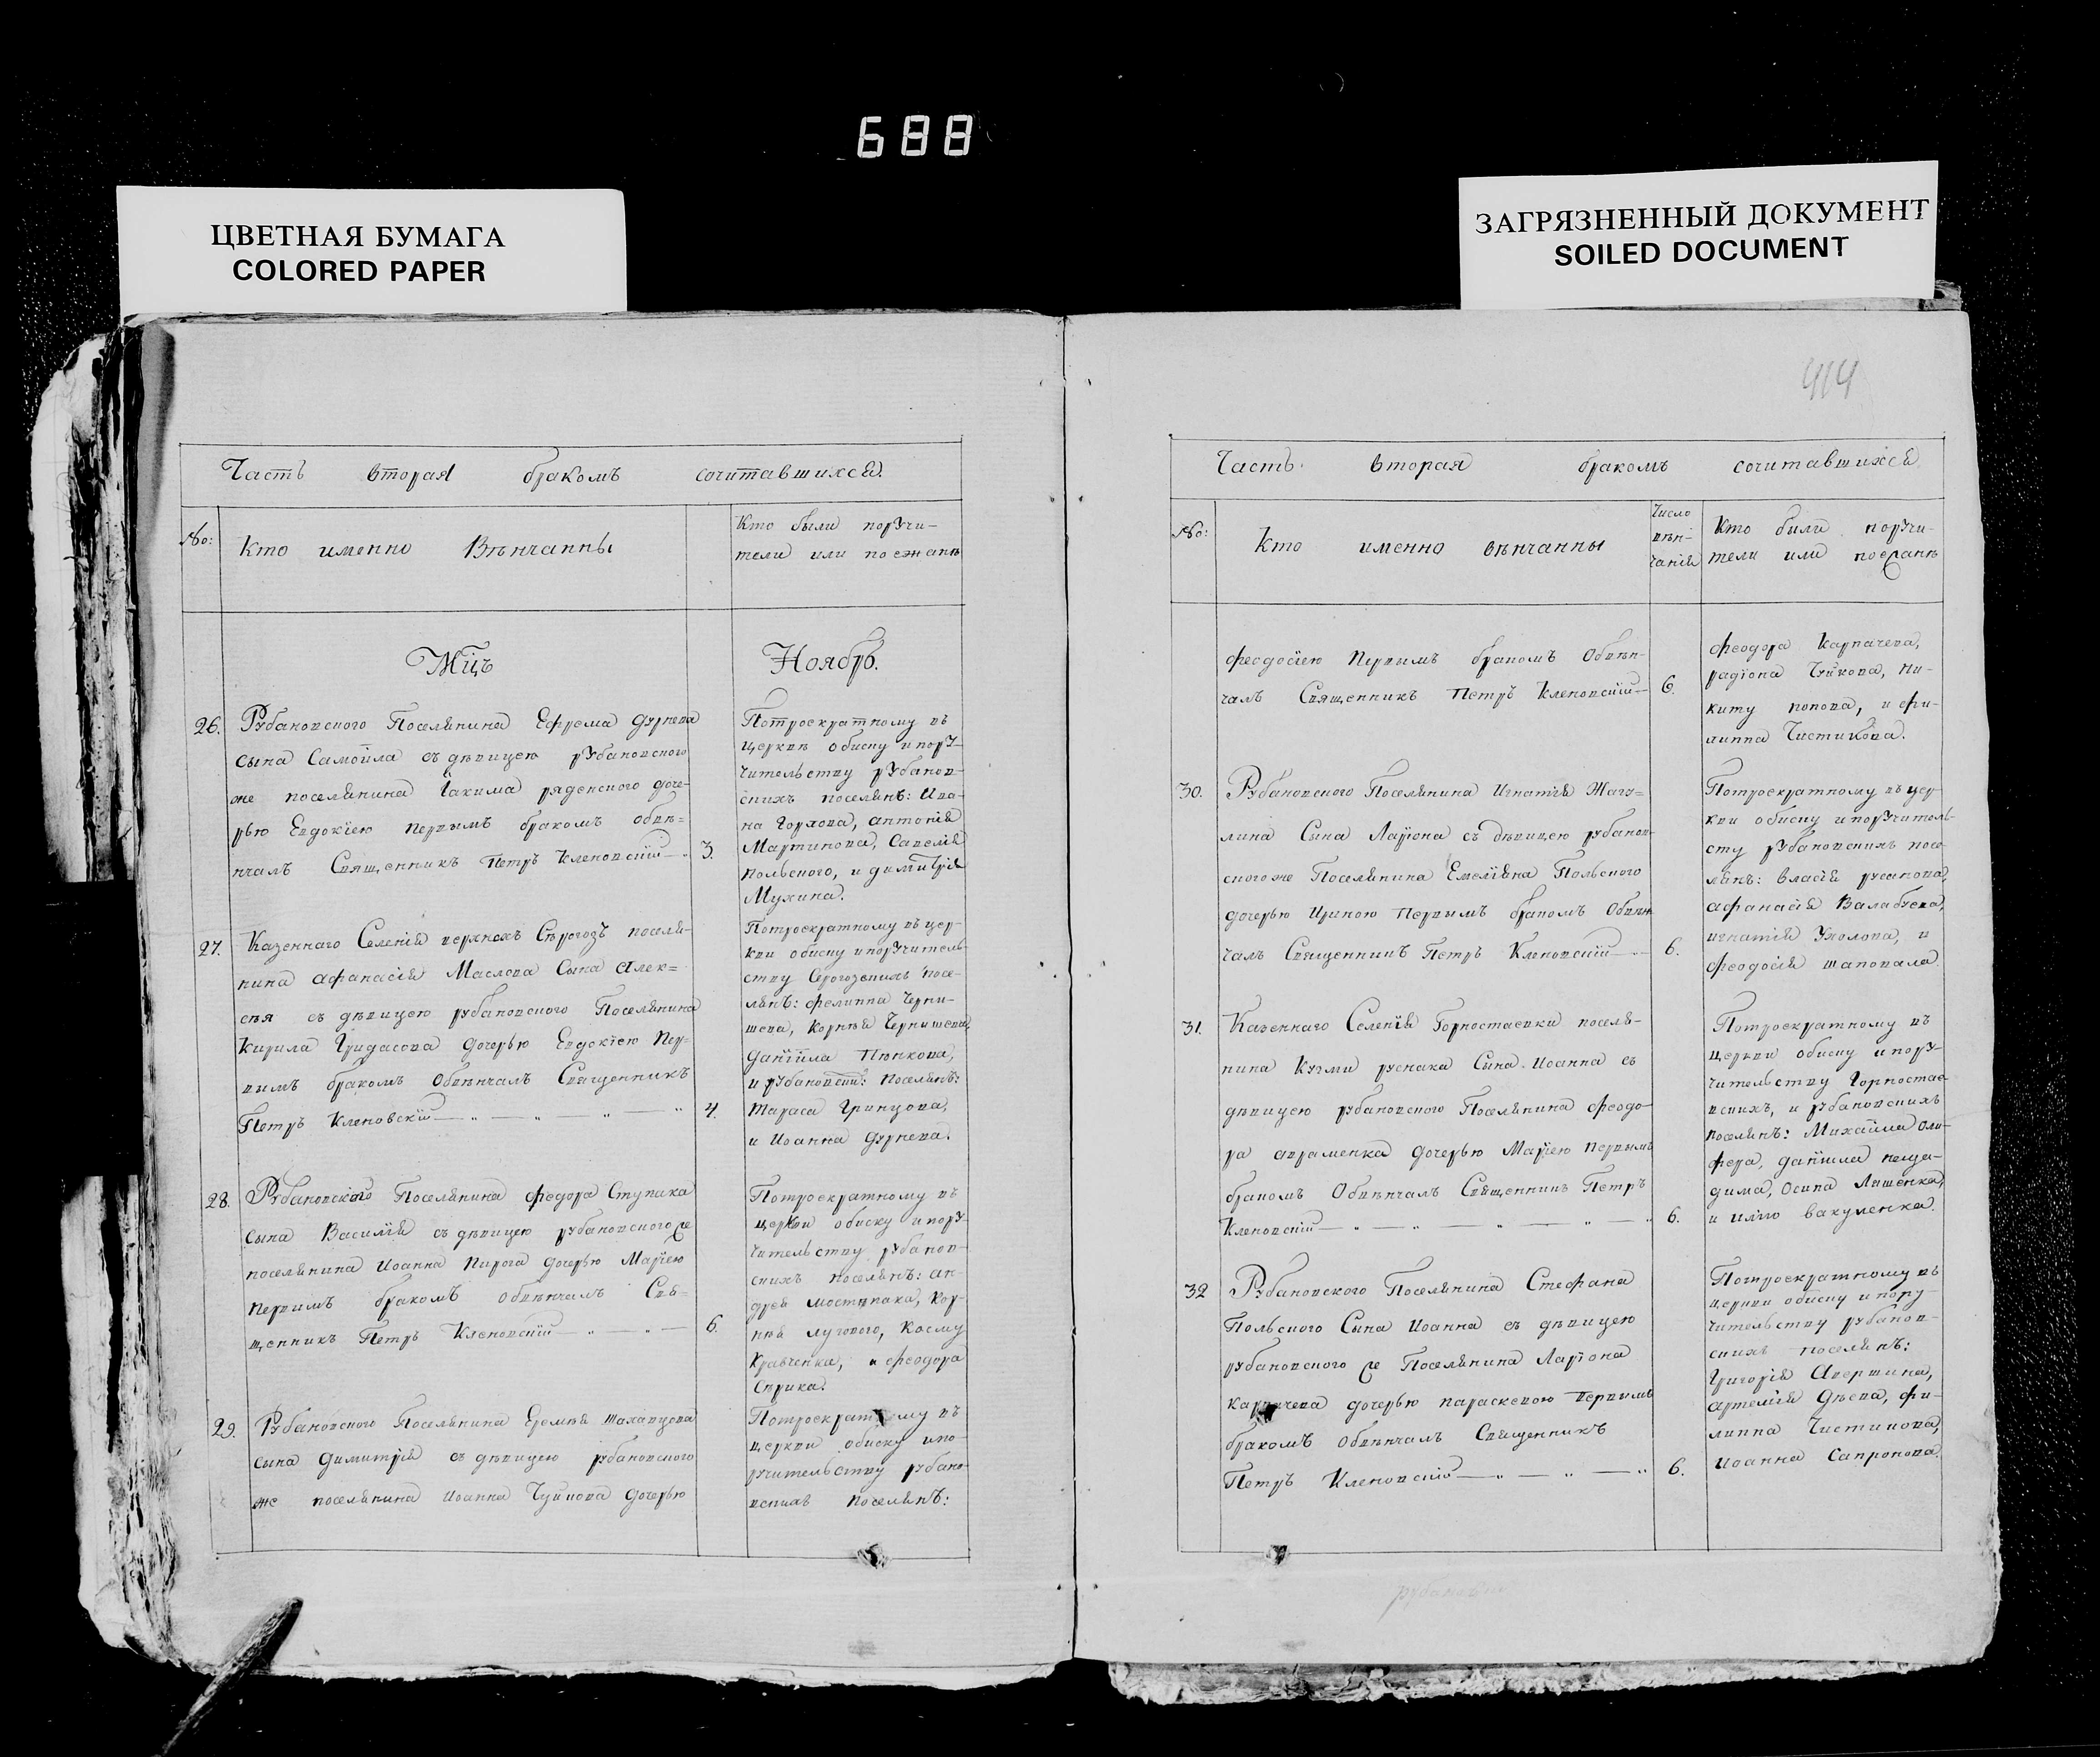 688
ЦВЕТНАЯ БУМАГА
COLORED PAPER
ЗАГРЯЗНЕННЫЙ ДОКУМЕНТ
SOILED DOCUMENT
Часть вторая бракомъ сочитавшихся.
№: Кто именно Вѣнчанны
Кто были поручи-
тели или поезжанѣ
Мцъ Ноябрь.
26. Рубановского Поселянина Ефрема Дурнева
сына Самоила съ дѣвицею рубановского
же поселянина Іакима ряденского доче-
рью Евдокіею первымъ бракомъ обвѣ-
нчалъ Священникъ Петръ Кленовскій 3.
Потроекратному въ
церквѣ обиску и пору-
чительству рубанов-
скихъ поселянъ: Ива-
на Горлова, антонія
Мартинова, Савелія
польского, и димитрія
Мухина.
27. Казеннаго Селенія верхнихъ Сѣрогозъ поселя-
нина афанасія Маслова Сына Алек-
сѣя съ дѣвицею рубановского Поселянина
Кирила Гридасова дочерью Евдокіею Пер-
вымъ бракомъ Обвѣнчалъ Священникъ
Петръ Кленовскій 4.
Потроекратному въ цер-
кви обиску и поручитель-
ству Серогозскихъ посе-
лянъ: филиппа Черни-
шева, Корнѣя Чернишева,
Даніила Пѣнкова,
и рубановскихъ: поселянъ:
тараса Гринцова,
и Иоанна Дурнева.
28. Рубановского Поселянина федора Ступака
сына Василія съ дѣвицею рубановского же
поселянина Иоанна Пирога дочерью Маріею
первимъ бракомъ обвѣнчалъ Свя-
щенникъ Петръ Кленовскій 6.
Потроекратному въ
церкви обиску и пору-
чительству рубанов-
скихъ поселянъ: ан-
дрея мостѣпака, Кор-
нѣя лугового, Косму
Кравченка, и феодора
Сприка.
29. Рубановского Поселянина Еремѣя шалавцова
сына Димитрія съ дѣвицею рубановского
же поселянина Иоанна Чуйкова дочерью
Потроекратному въ
церкви обиску и по-
ручительству рубано-
вскихъ поселянъ:
414
Часть вторая бракомъ сочитавшихся
№: Кто именно вѣнчанны
Число
вѣн-
чанія
Кто были поручи-
тели или поезжанѣ
феодосіею Первымъ бракомъ Обвѣн-
чалъ Священникъ Петръ Кленовскій 6.
феодора Карпачева,
радіона Чуйкова, ни-
киту попова, и фи-
липпа Чистикова.
30. Рубановского Поселянина Игнатія Жагу-
лина Сына Ларіона съ дѣвицею рубанов-
ского же Поселянина Емеліяна Польского
дочерью Ириною Первымъ бракомъ Обвѣн
чалъ Священникъ Петръ Кленовскій 6.
Потроекратному въ цер-
кви обиску и поручитель-
сту рубановскихъ посе-
лянъ: власія русанова,
афанасія Валабуева,
игнатія Ухолова, и
феодосія шаповала.
31. Казеннаго Селенія Горностаевки поселя-
нина Кузми руснака Сина Иоанна съ
дѣвицею рубановского Поселянина феодо-
ра авраменка дочерью Маріею первымъ
бракомъ Обвѣнчалъ Священникъ Петръ
Кленовскій 6.
Потроекратному въ
церкви обиску и пору-
чительству Горностае-
вскихъ, и рубановскихъ
поселянъ: Михаила оли-
фера, даніила неща-
дима, Осипа Ляшенка,
и илію вакуленка.
32 Рубановского Поселянина Стефана
Польского Сына Иоанна съ дѣвицею
рубановского же Поселянина Ларіона
Карпачева дочерью параскевою Первымъ
бракомъ Обвѣнчалъ Священникъ
Петръ Кленовскій 6.
Потроекратному въ
церкви обиску и пору-
чительству рубанов-
скихъ поселянъ:
Григорія Авершина,
артемія Дѣева, фи-
липпа Чистикова,
Иоанна Сапронова.